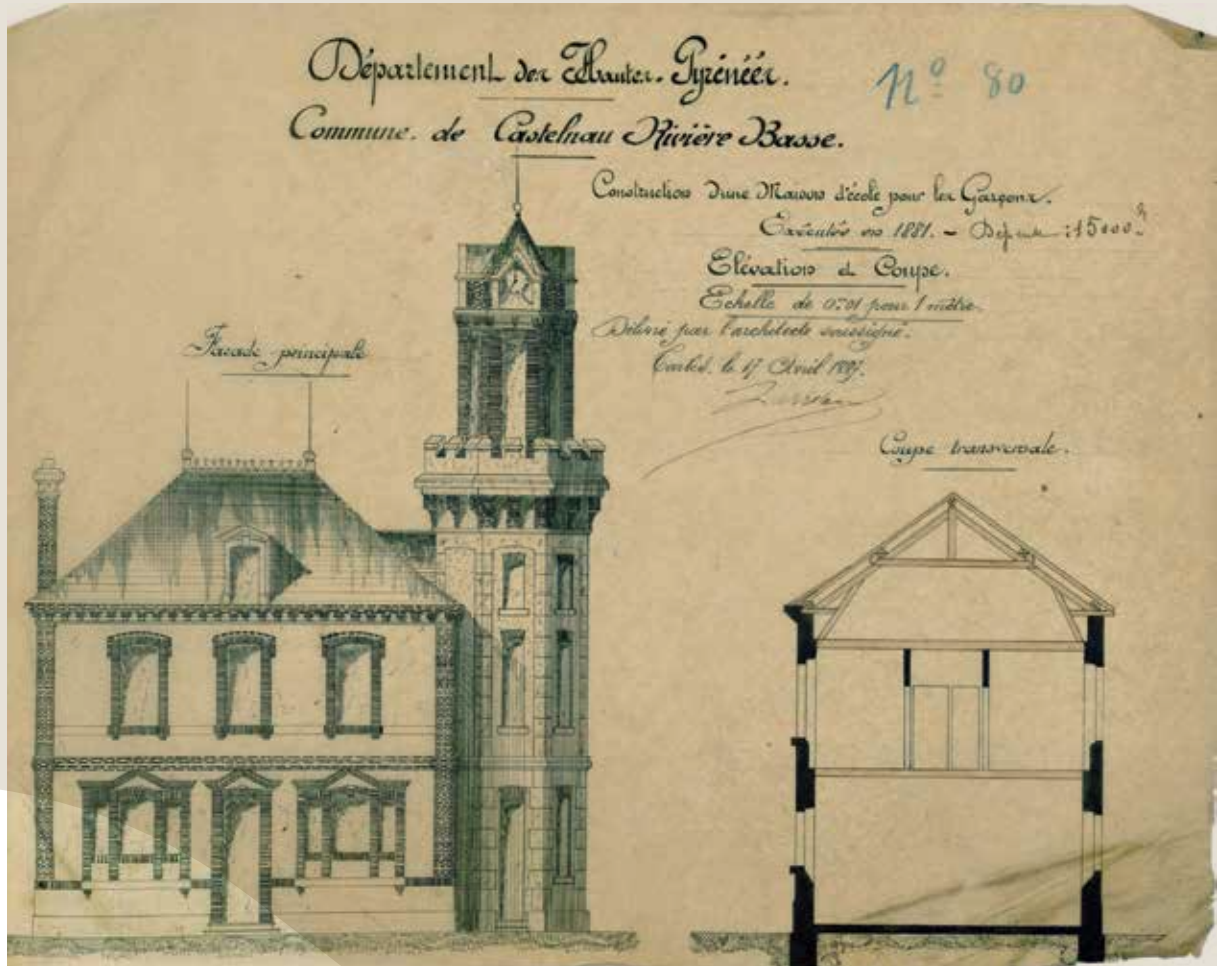 Département des Hautes-Pyrénées.
N° 80
Commune de Castelnau Rivière Basse.
Construction d'une Maison d'école pour les Garçons.
Exécutée en 1881. - Dépense : 15000 fr
Elévation et Coupe.
Echelle de 0m01 pour 1 mètre.
Délivré par l'architecte soussigné.
Tarbes, le 17 Avril 1887.
Façade principale
Coupe transversale.